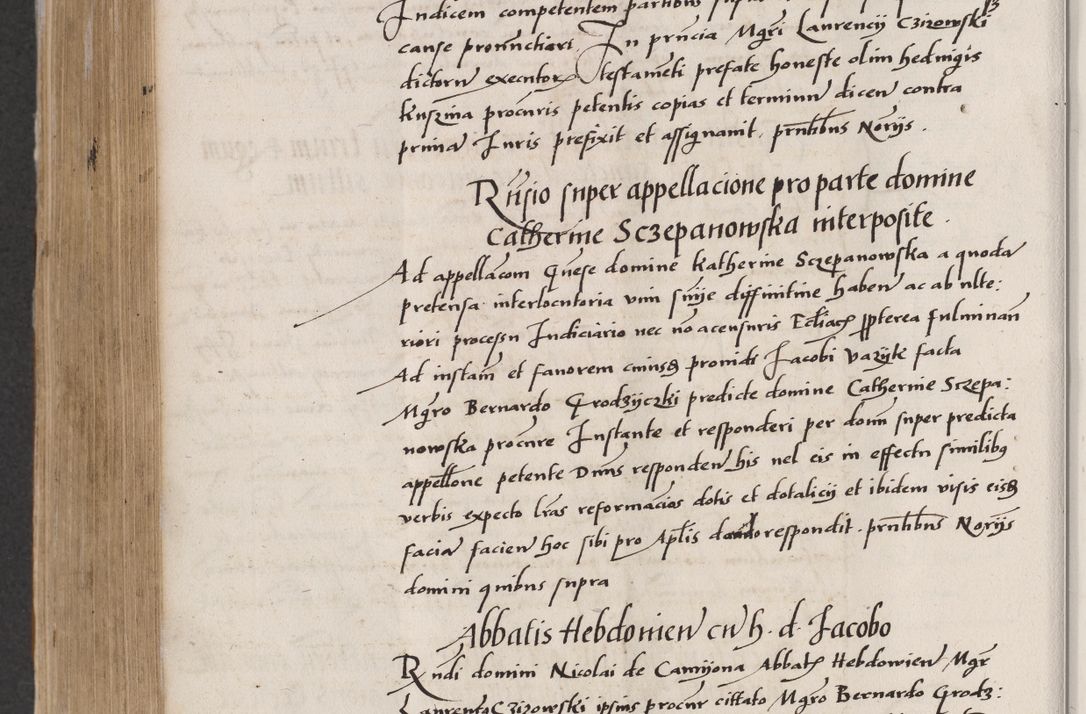 Indicem competentem partibus
causse pronunctiari. In pñcia Mgri Laurencij Czizowski
dictorũ executorʒ testamẽti prefate honeste olim hedwigis
Kuszina procuris petentis copias et terminũ dicen contra
primã Iuris prefixit et assignauit. pñtibus Norijs.
Rñsio super appellacione pro parte domine
Catherine Sczepanowska interposite.
Ad appellacom Gnese domine Katherine Sczepanowska a quoda
pretensa interlocutoria vim snije diffinitiue haben ac ab vlte:
riori processu Iudiciario nec nõ a censuris Ecliacʒ ppterea fulminan
Ad instam et fauorem eiusdʒ prouidi Jacobi Vazyk facta
Mgro Bernardo Grodzyczki predicte domine Catherine Sczepa:
nowska procure Instante et responderi per domũ super predicta
appellone petente Dnus responden his vel eis in effectu similibꝫ
verbis expecto lras reformacios dotis et dotalicij et ibidem visis eisdʒ
faciã facien hoc sibi pro Aplis dando respondit. pñtibus Norijs
domini quibus supra
Abbatis Hebdouien cũ h. d. Jacobo
Rndi domini Nicolai de Camijona Abbatʒ Hebdowien Mgr
Laurentꝫ Czizowski ipsius procur cittato Mgro Bernardo Grodz: